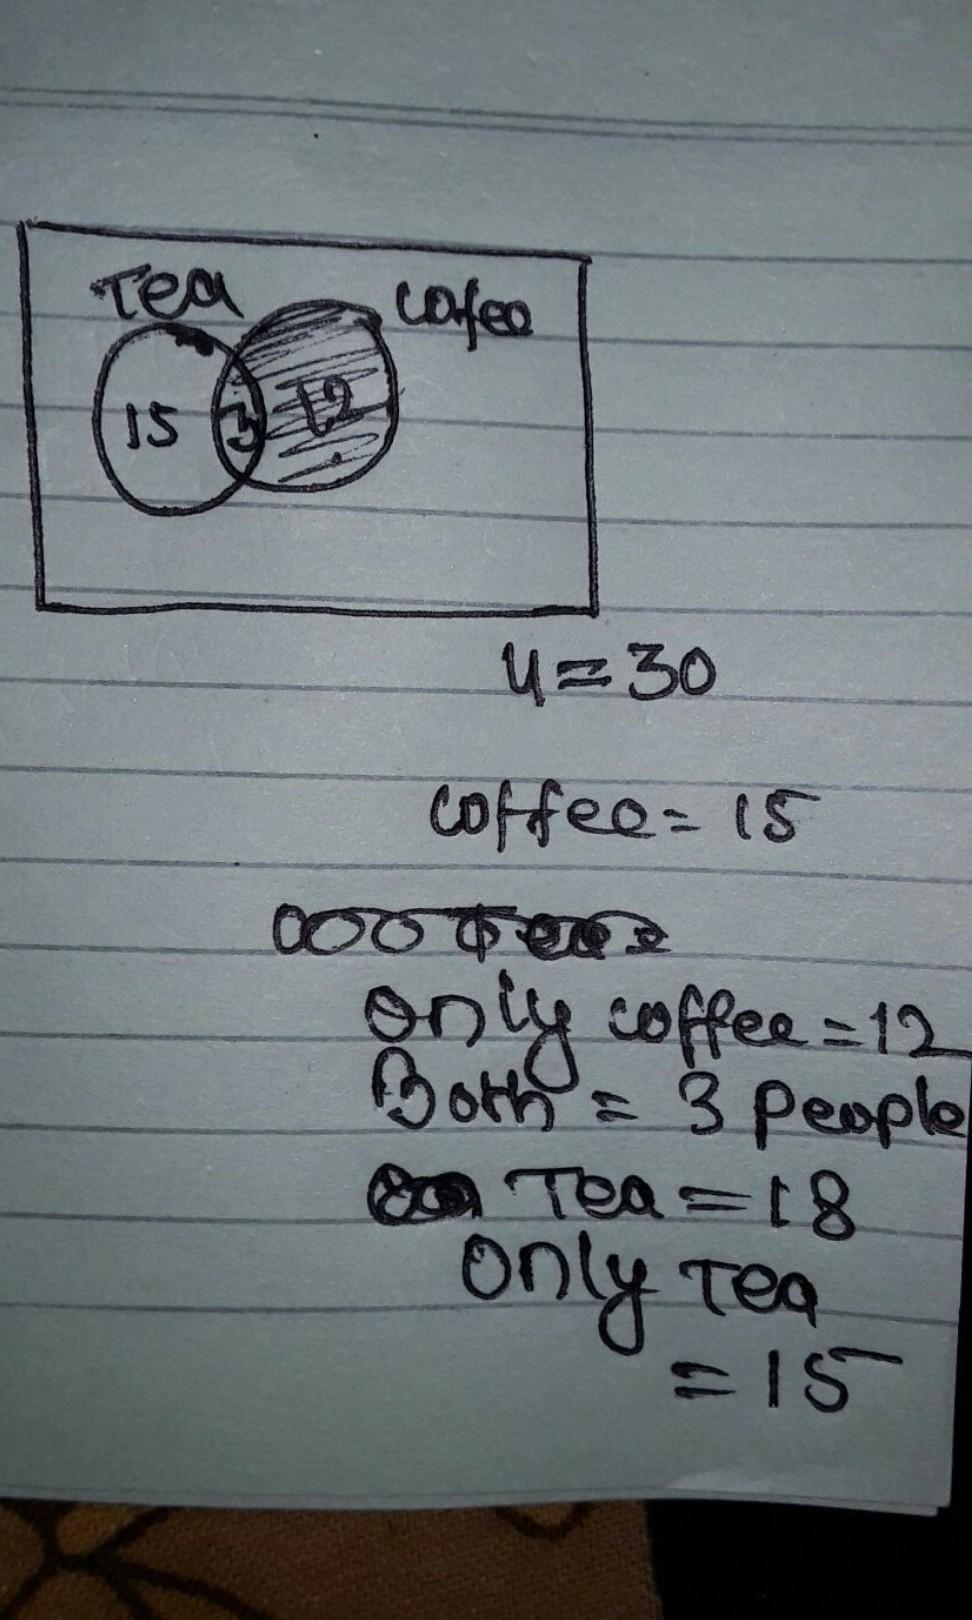 Tea cofee
15 3 12
U=30
coffee= 15
only coffee=12
Both = 3 people
Tea=18
only Tea
=15